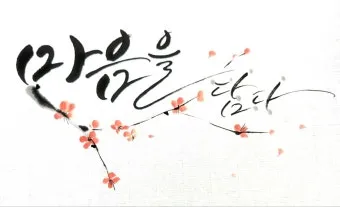 마음을
담다